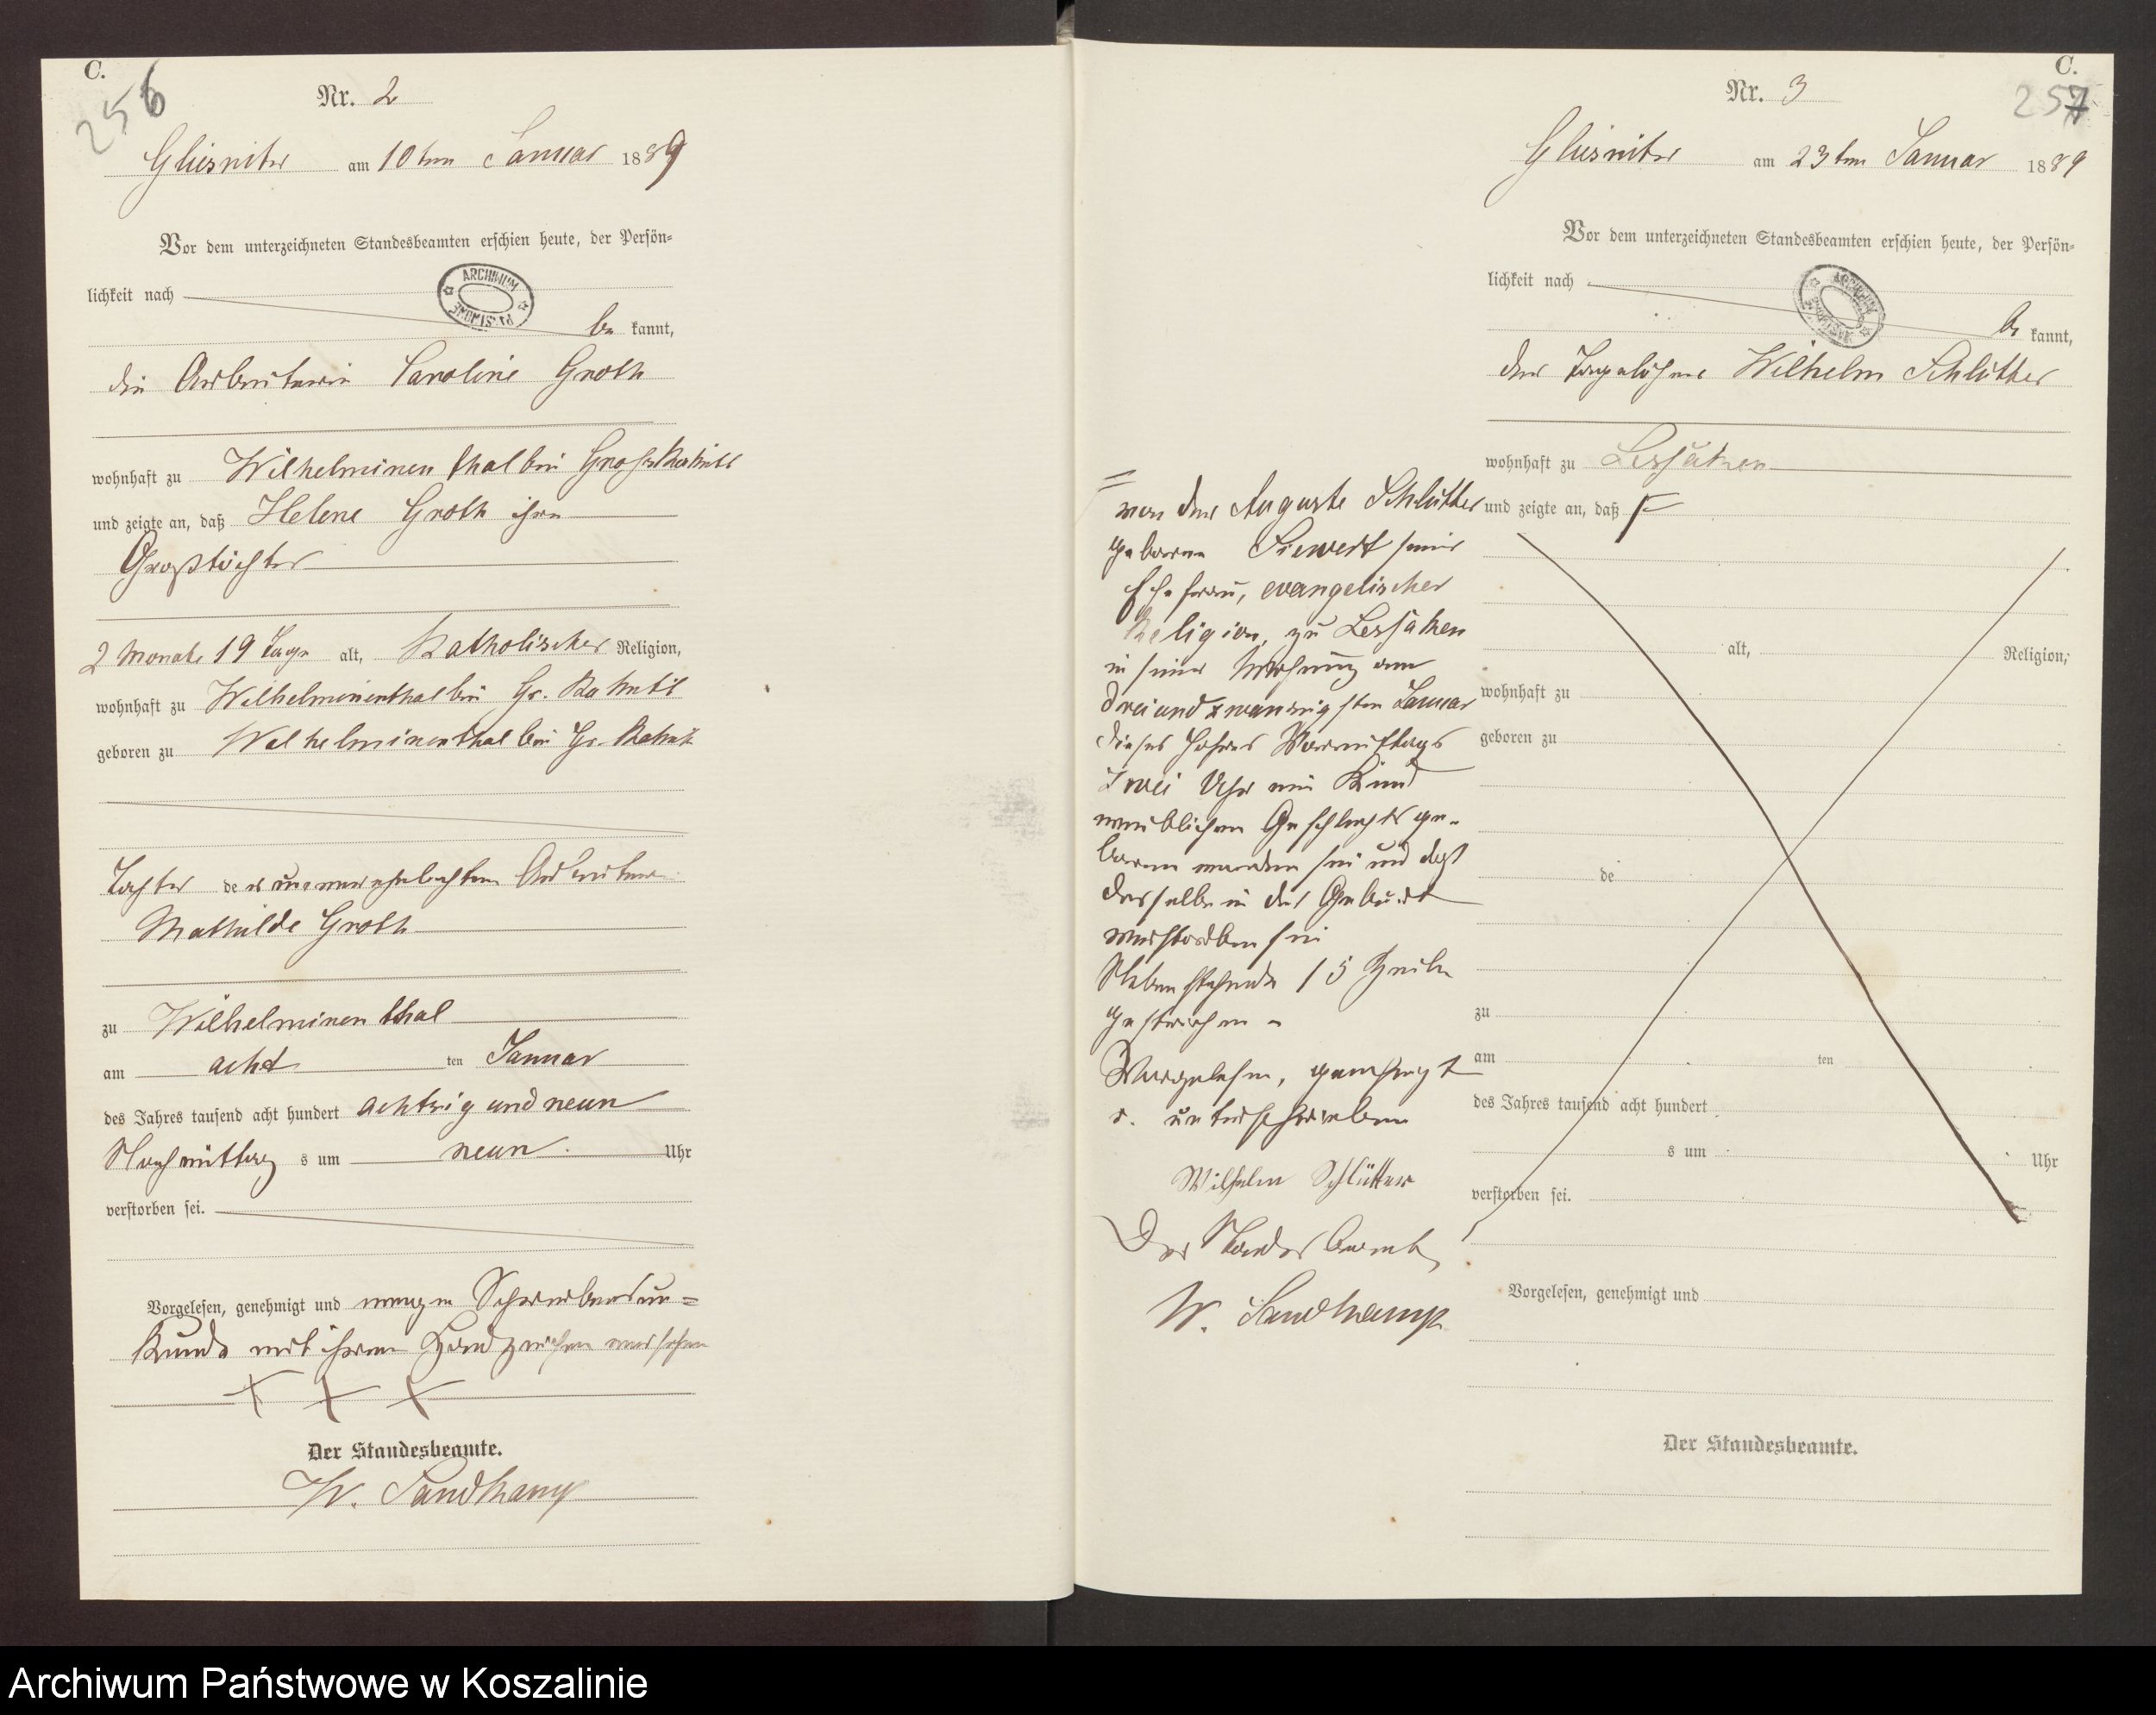 C.
256
Nr. 2
Gliesnitz am 10ten Januar 1889
Vor dem unterzeichneten Standesbeamten erschien heute, der Persön=
lichkeit nach
ARCHIWUM PAŃSTWOWE
be kannt,
die Arbeiterin Caroline Groth
wohnhaft zu Wilhelminenthal bei Groß
und zeigte an, daß Helene Groth ihre
Großtochter
2 Monate 19 Tage alt, Katholischer Religion,
wohnhaft zu Wilhelminenthal bei Gr.
geboren zu Wilhelminenthal bei Gr.
Tochter der unverehelichten Arbeiterin
Mathilde Groth
zu Wilhelminenthal
am acht ten Januar
des Jahres tausend acht hundert achtzig und neun
Nachmittag s um neun Uhr
verstorben sei.
Vorgelesen, genehmigt und wegen Schreibensun=
kunde mit ihrem Handzeichen versehen
+ + +
Der Standesbeamte.
W. Sandkamp
C.
257
Nr. 3
Gliesnitz am 23ten Januar 1889
Vor dem unterzeichneten Standesbeamten erschien heute, der Persön=
lichkeit nach
ARCHIWUM PAŃSTWOWE
be kannt,
der Tagelöhner Wilhelm Schlütter
wohnhaft zu Lessaken
und zeigte an, daß
von der Auguste Schlütter
geborne Siewert seiner
Ehefrau, evangelischer
Religion, zu Lessaken
in seiner Wohnung am
dreiundzwanzigsten Januar
dieses Jahres Vormittags
zwei Uhr ein Kind
weiblichen Geschlechts ge-
boren worden sei und daß
dasselbe in der Geburt
verstorben sei
Nebenstehende 15 Zeilen
gestrichen
Vorgelesen, genehmigt
u. unterschrieben
Wilhelm Schlütter
Der Standesbeamte
W. Sandkamp
alt, Religion,
wohnhaft zu
geboren zu
de
zu
am ten
des Jahres tausend acht hundert
s um Uhr
verstorben sei.
Vorgelesen, genehmigt und
Der Standesbeamte.
Archiwum Państwowe w Koszalinie